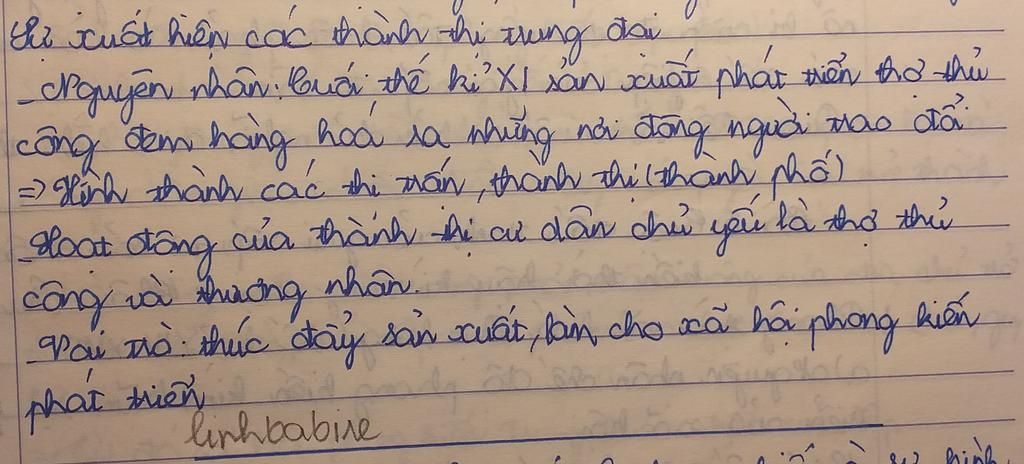 Sự xuất hiện các thành thị trung đại
_ Nguyên nhân: Cuối thế kỉ XI sản xuất phát triển thợ thủ
công đem hàng hoá ra những nơi đông người trao đổi
=> Hình thành các thị trấn, thành thị (thành phố)
_ Hoạt động của thành thị cư dân chủ yếu là thợ thủ
công và thương nhân.
_ Vai trò: thúc đẩy sản xuất, làm cho xã hội phong kiến
phát triển
linhbabine
sự hình